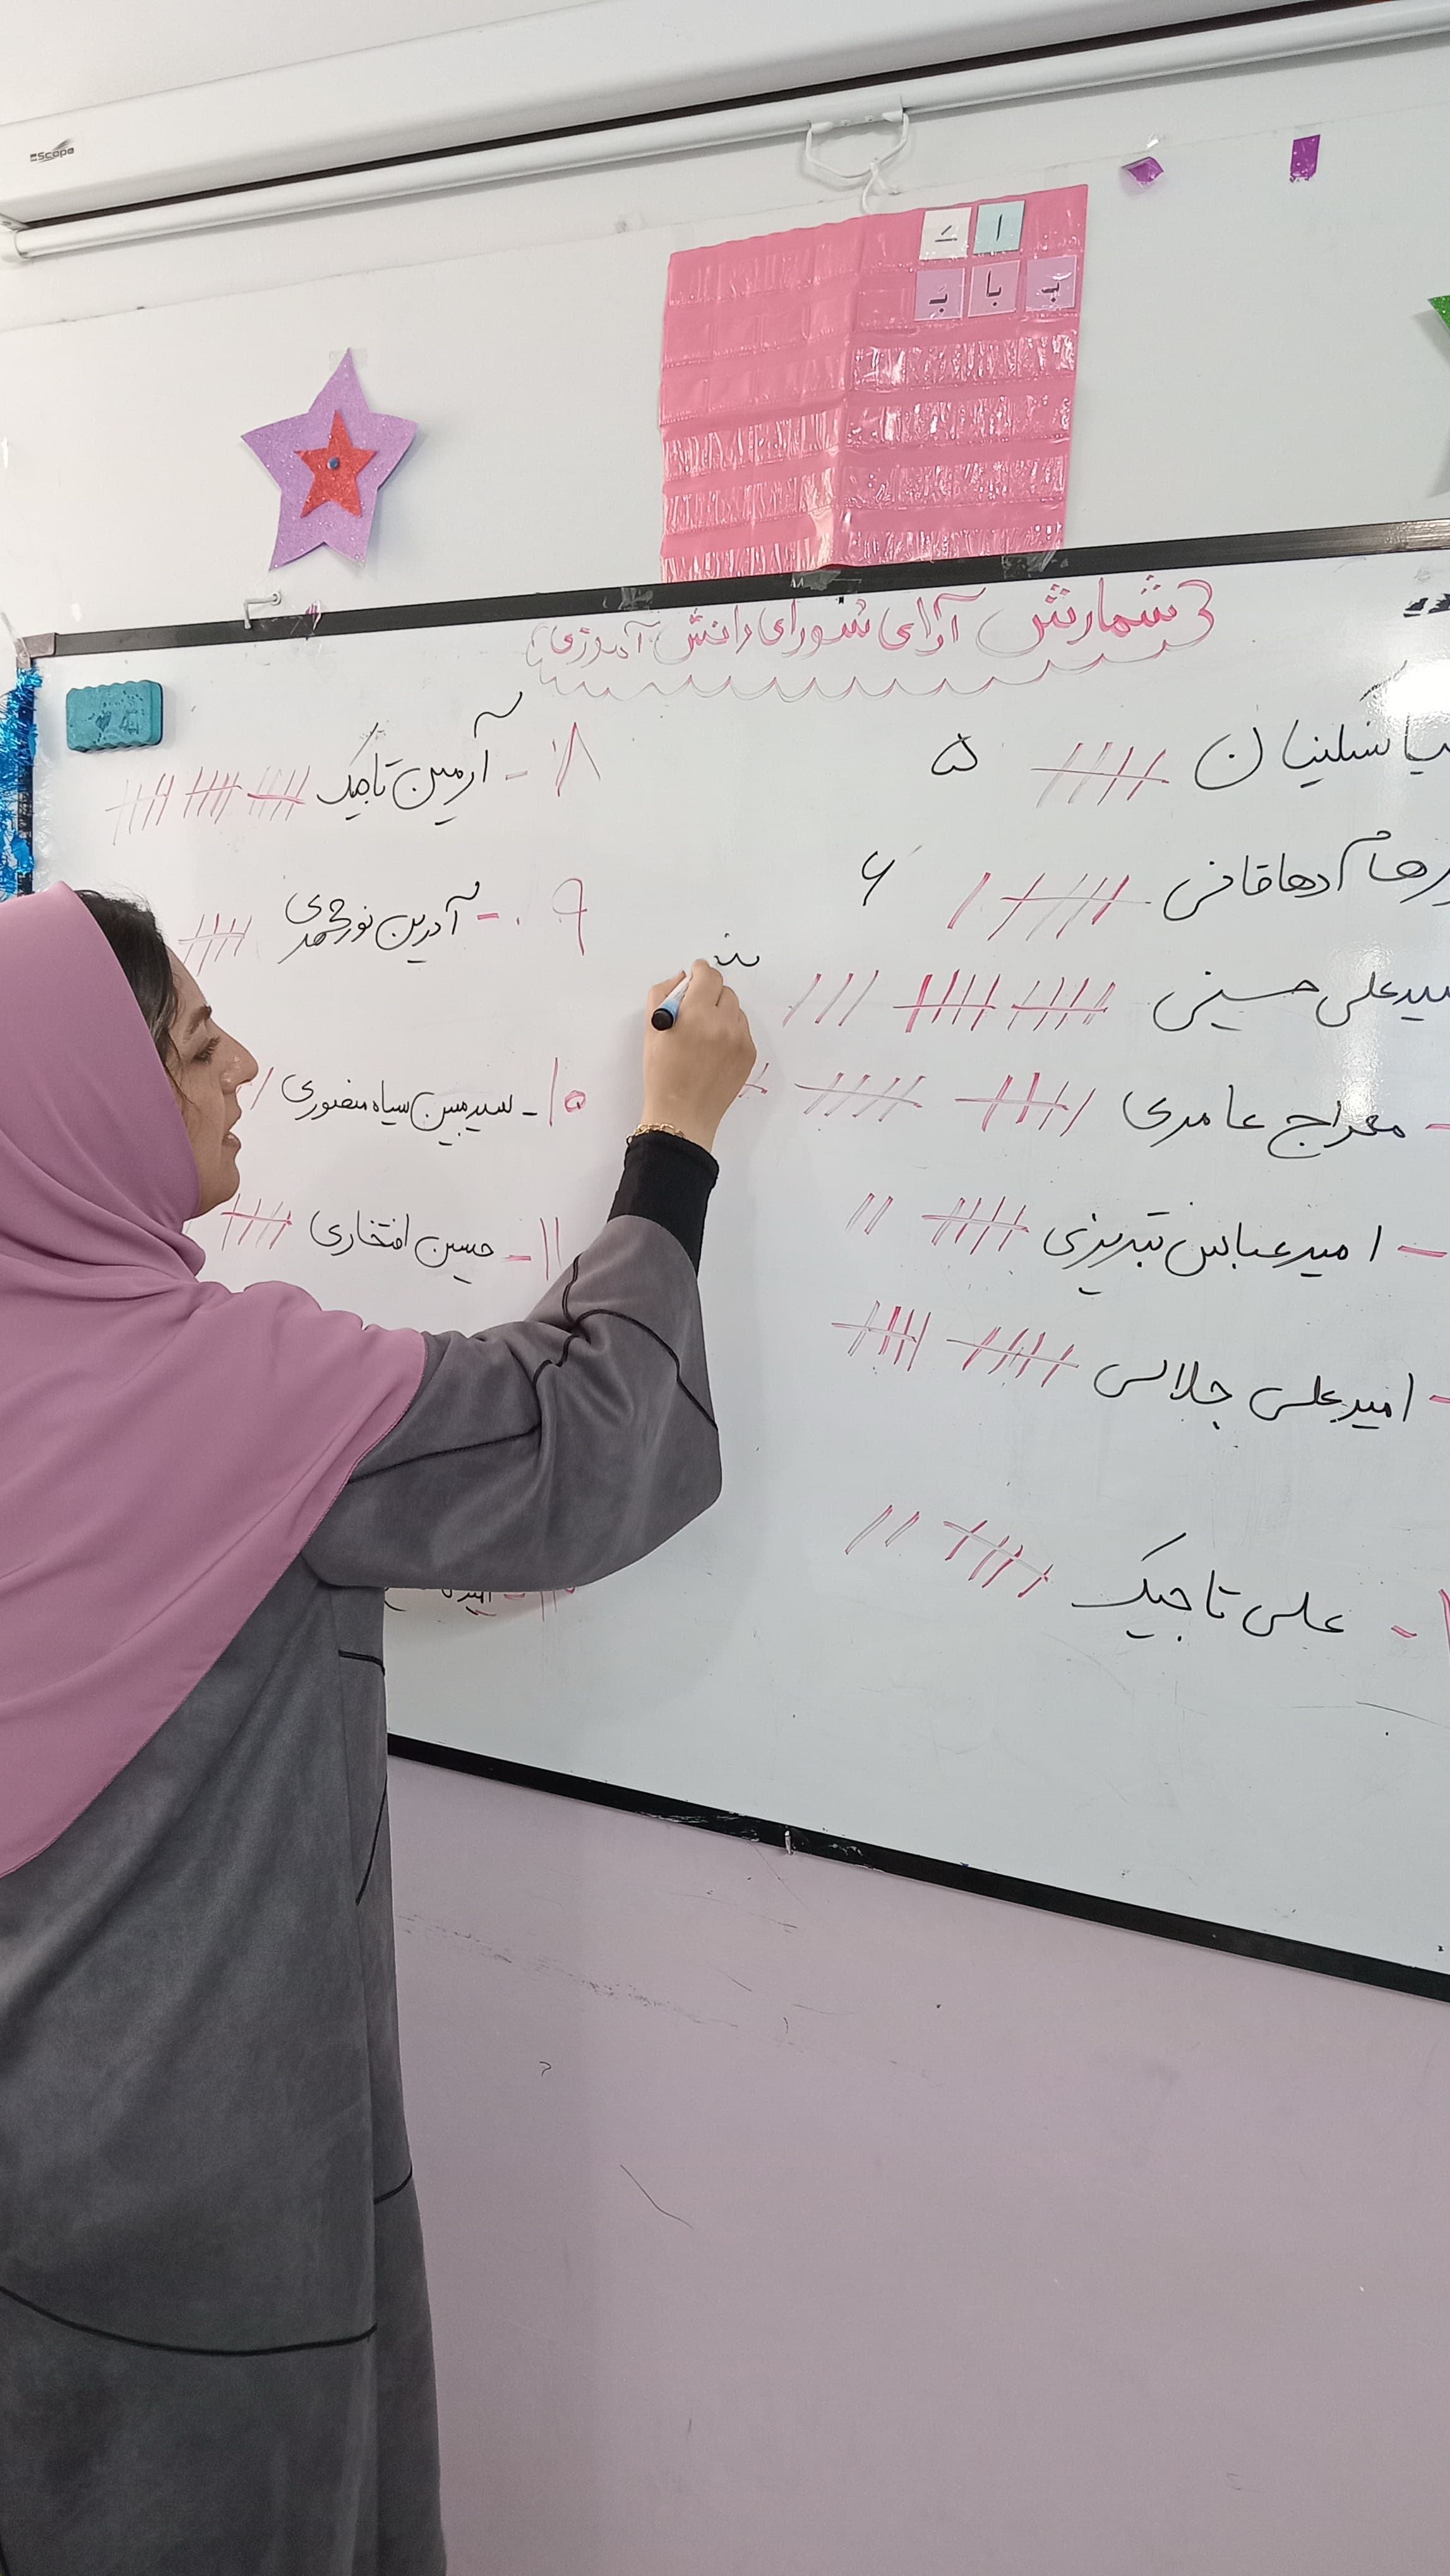 eScope
ا ـَ
بَـ با ـب
شمارش آرای شورای دانش آموزی
سلینیان ۵
دهاقانی ۶
سیدعلی حسینی
- معراج عامری
- امیرعباس تبریزی
- امیرعلی جلالی
- علی تاجیک
۸- آرمین تاجیک
۹- آدرین نورمحمدی
۱۰- سیدمبین سیاه منصوری
۱۱- حسین افتخاری